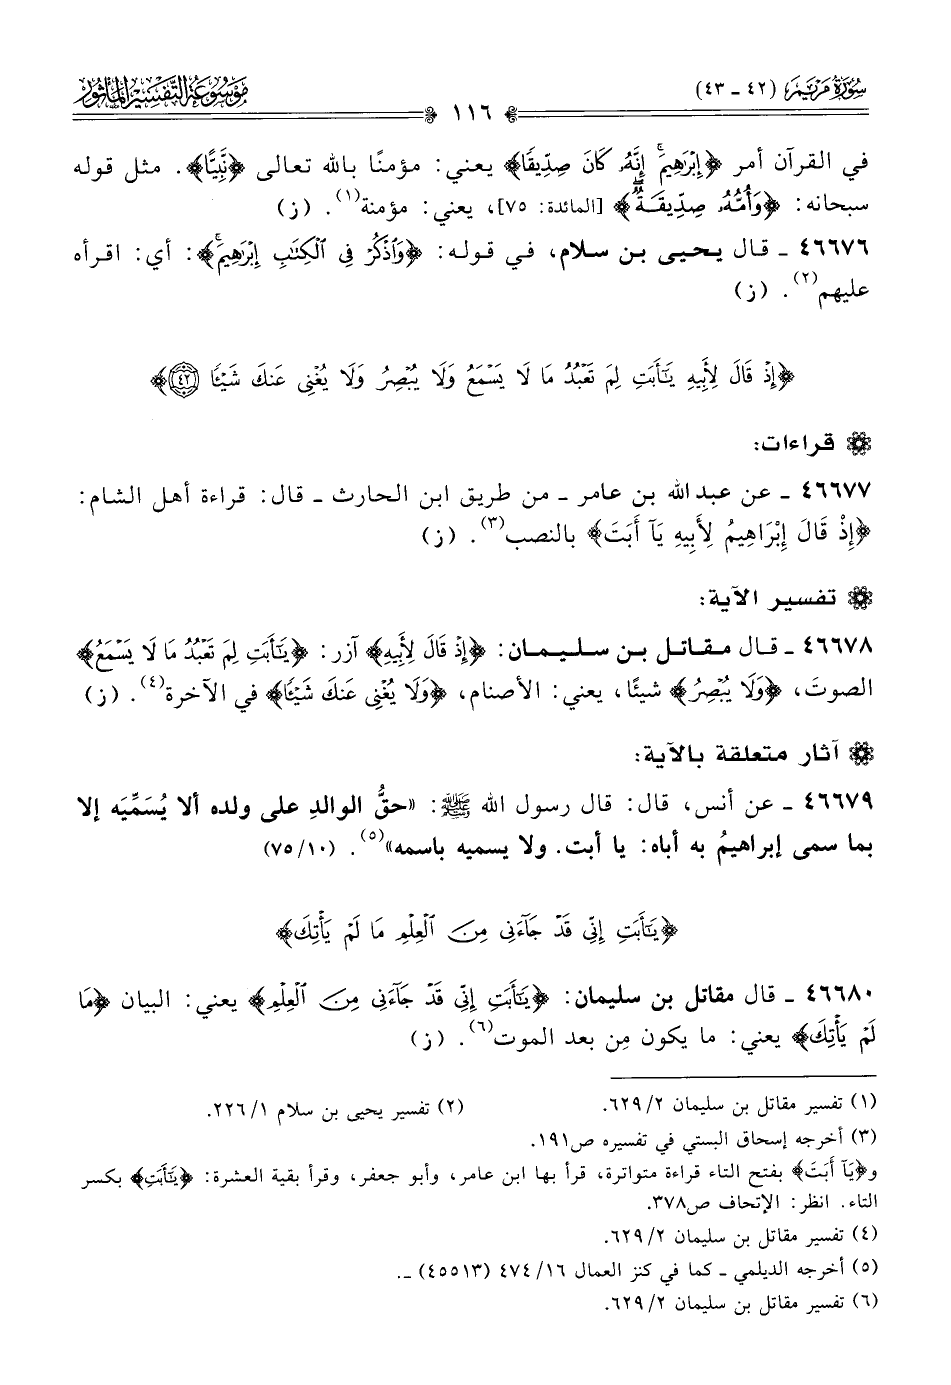 سُورَةُ مَرْيَمَ (٤٢ - ٤٣)
١١٦
مَوْسُوعَةُ التَّفْسِيرِ المَأْثُور
في القرآن أمر ﴿إِبْرَٰهِيمَۚ إِنَّهُۥ كَانَ صِدِّيقًا﴾ يعني: مؤمنًا بالله تعالى ﴿نَّبِيًّا﴾. مثل قوله
سبحانه: ﴿وَأُمُّهُۥ صِدِّيقَةٌۖ﴾ [المائدة: ٧٥]، يعني: مؤمنة(١). (ز)
٤٦٦٧٦ - قال يحيى بن سلام، في قوله: ﴿وَٱذْكُرْ فِى ٱلْكِتَٰبِ إِبْرَٰهِيمَۚ﴾: أي: اقرأه
عليهم(٢). (ز)
﴿إِذْ قَالَ لِأَبِيهِ يَٰٓأَبَتِ لِمَ تَعْبُدُ مَا لَا يَسْمَعُ وَلَا يُبْصِرُ وَلَا يُغْنِى عَنكَ شَيْـًٔا ٤٢﴾
قراءات:
٤٦٦٧٧ - عن عبد الله بن عامر - من طريق ابن الحارث - قال: قراءة أهل الشام:
﴿إِذْ قَالَ إِبْرَاهِيمُ لِأَبِيهِ يَآ أَبَتَ﴾ بالنصب(٣). (ز)
تفسير الآية:
٤٦٦٧٨ - قال مقاتل بن سليمان: ﴿إِذْ قَالَ لِأَبِيهِ﴾ آزر: ﴿يَٰٓأَبَتِ لِمَ تَعْبُدُ مَا لَا يَسْمَعُ﴾
الصوتَ، ﴿وَلَا يُبْصِرُ﴾ شيئًا، يعني: الأصنام، ﴿وَلَا يُغْنِى عَنكَ شَيْـًٔا﴾ في الآخرة(٤). (ز)
آثار متعلقة بالآية:
٤٦٦٧٩ - عن أنس، قال: قال رسول الله ﷺ: «حقُّ الوالدِ على ولده ألا يُسَمِّيَه إلا
بما سمى إبراهيمُ به أباه: يا أبت. ولا يسميه باسمه»(٥). (٧٥/١٠)
﴿يَٰٓأَبَتِ إِنِّى قَدْ جَآءَنِى مِنَ ٱلْعِلْمِ مَا لَمْ يَأْتِكَ﴾
٤٦٦٨٠ - قال مقاتل بن سليمان: ﴿يَٰٓأَبَتِ إِنِّى قَدْ جَآءَنِى مِنَ ٱلْعِلْمِ﴾ يعني: البيان ﴿مَا
لَمْ يَأْتِكَ﴾ يعني: ما يكون مِن بعد الموت(٦). (ز)
(١) تفسير مقاتل بن سليمان ٦٢٩/٢. (٢) تفسير يحيى بن سلام ٢٢٦/١.
(٣) أخرجه إسحاق البستي في تفسيره ص١٩١.
و﴿يَآ أَبَتَ﴾ بفتح التاء قراءة متواترة، قرأ بها ابن عامر، وأبو جعفر، وقرأ بقية العشرة: ﴿يَٰٓأَبَتِ﴾ بكسر
التاء. انظر: الإتحاف ص٣٧٨.
(٤) تفسير مقاتل بن سليمان ٦٢٩/٢.
(٥) أخرجه الديلمي - كما في كنز العمال ٤٧٤/١٦ (٤٥٥١٣) -.
(٦) تفسير مقاتل بن سليمان ٦٢٩/٢.